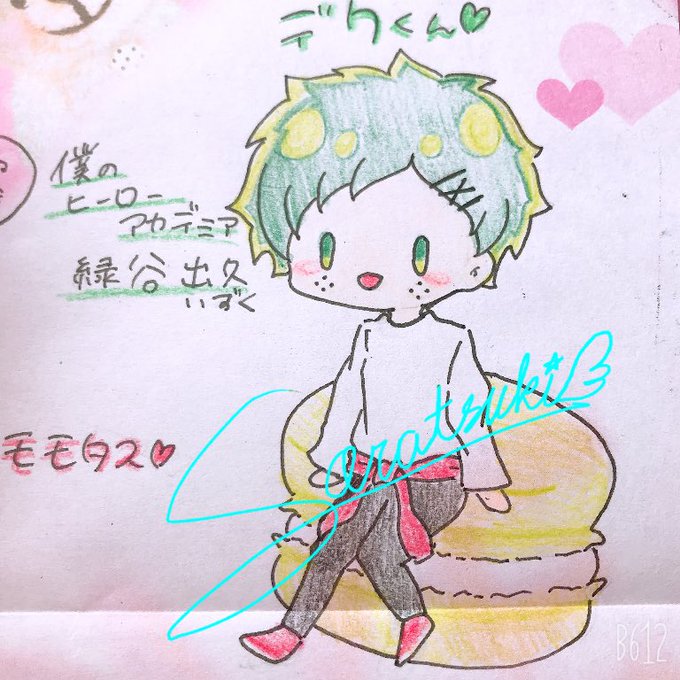 デクくん♥
僕の
ヒーロー
アカデミア
緑谷 出久
いずく
モモタス♥
Saratsuki
B612